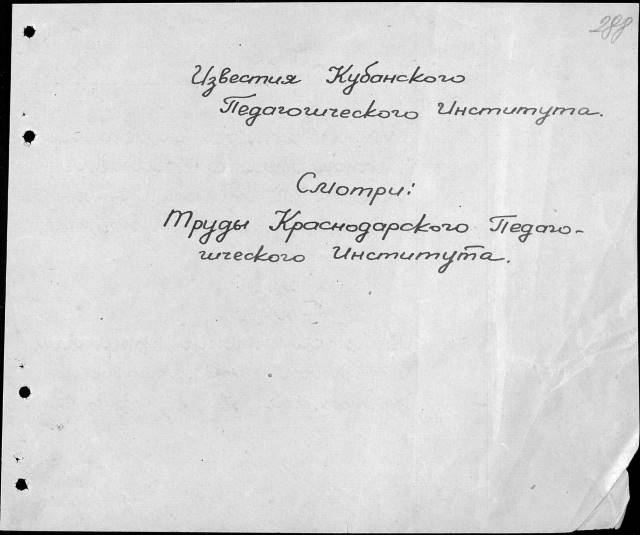 288
Известия Кубанского
Педагогического Института.
Смотри:
Труды Краснодарского Педаго-
гического Института.